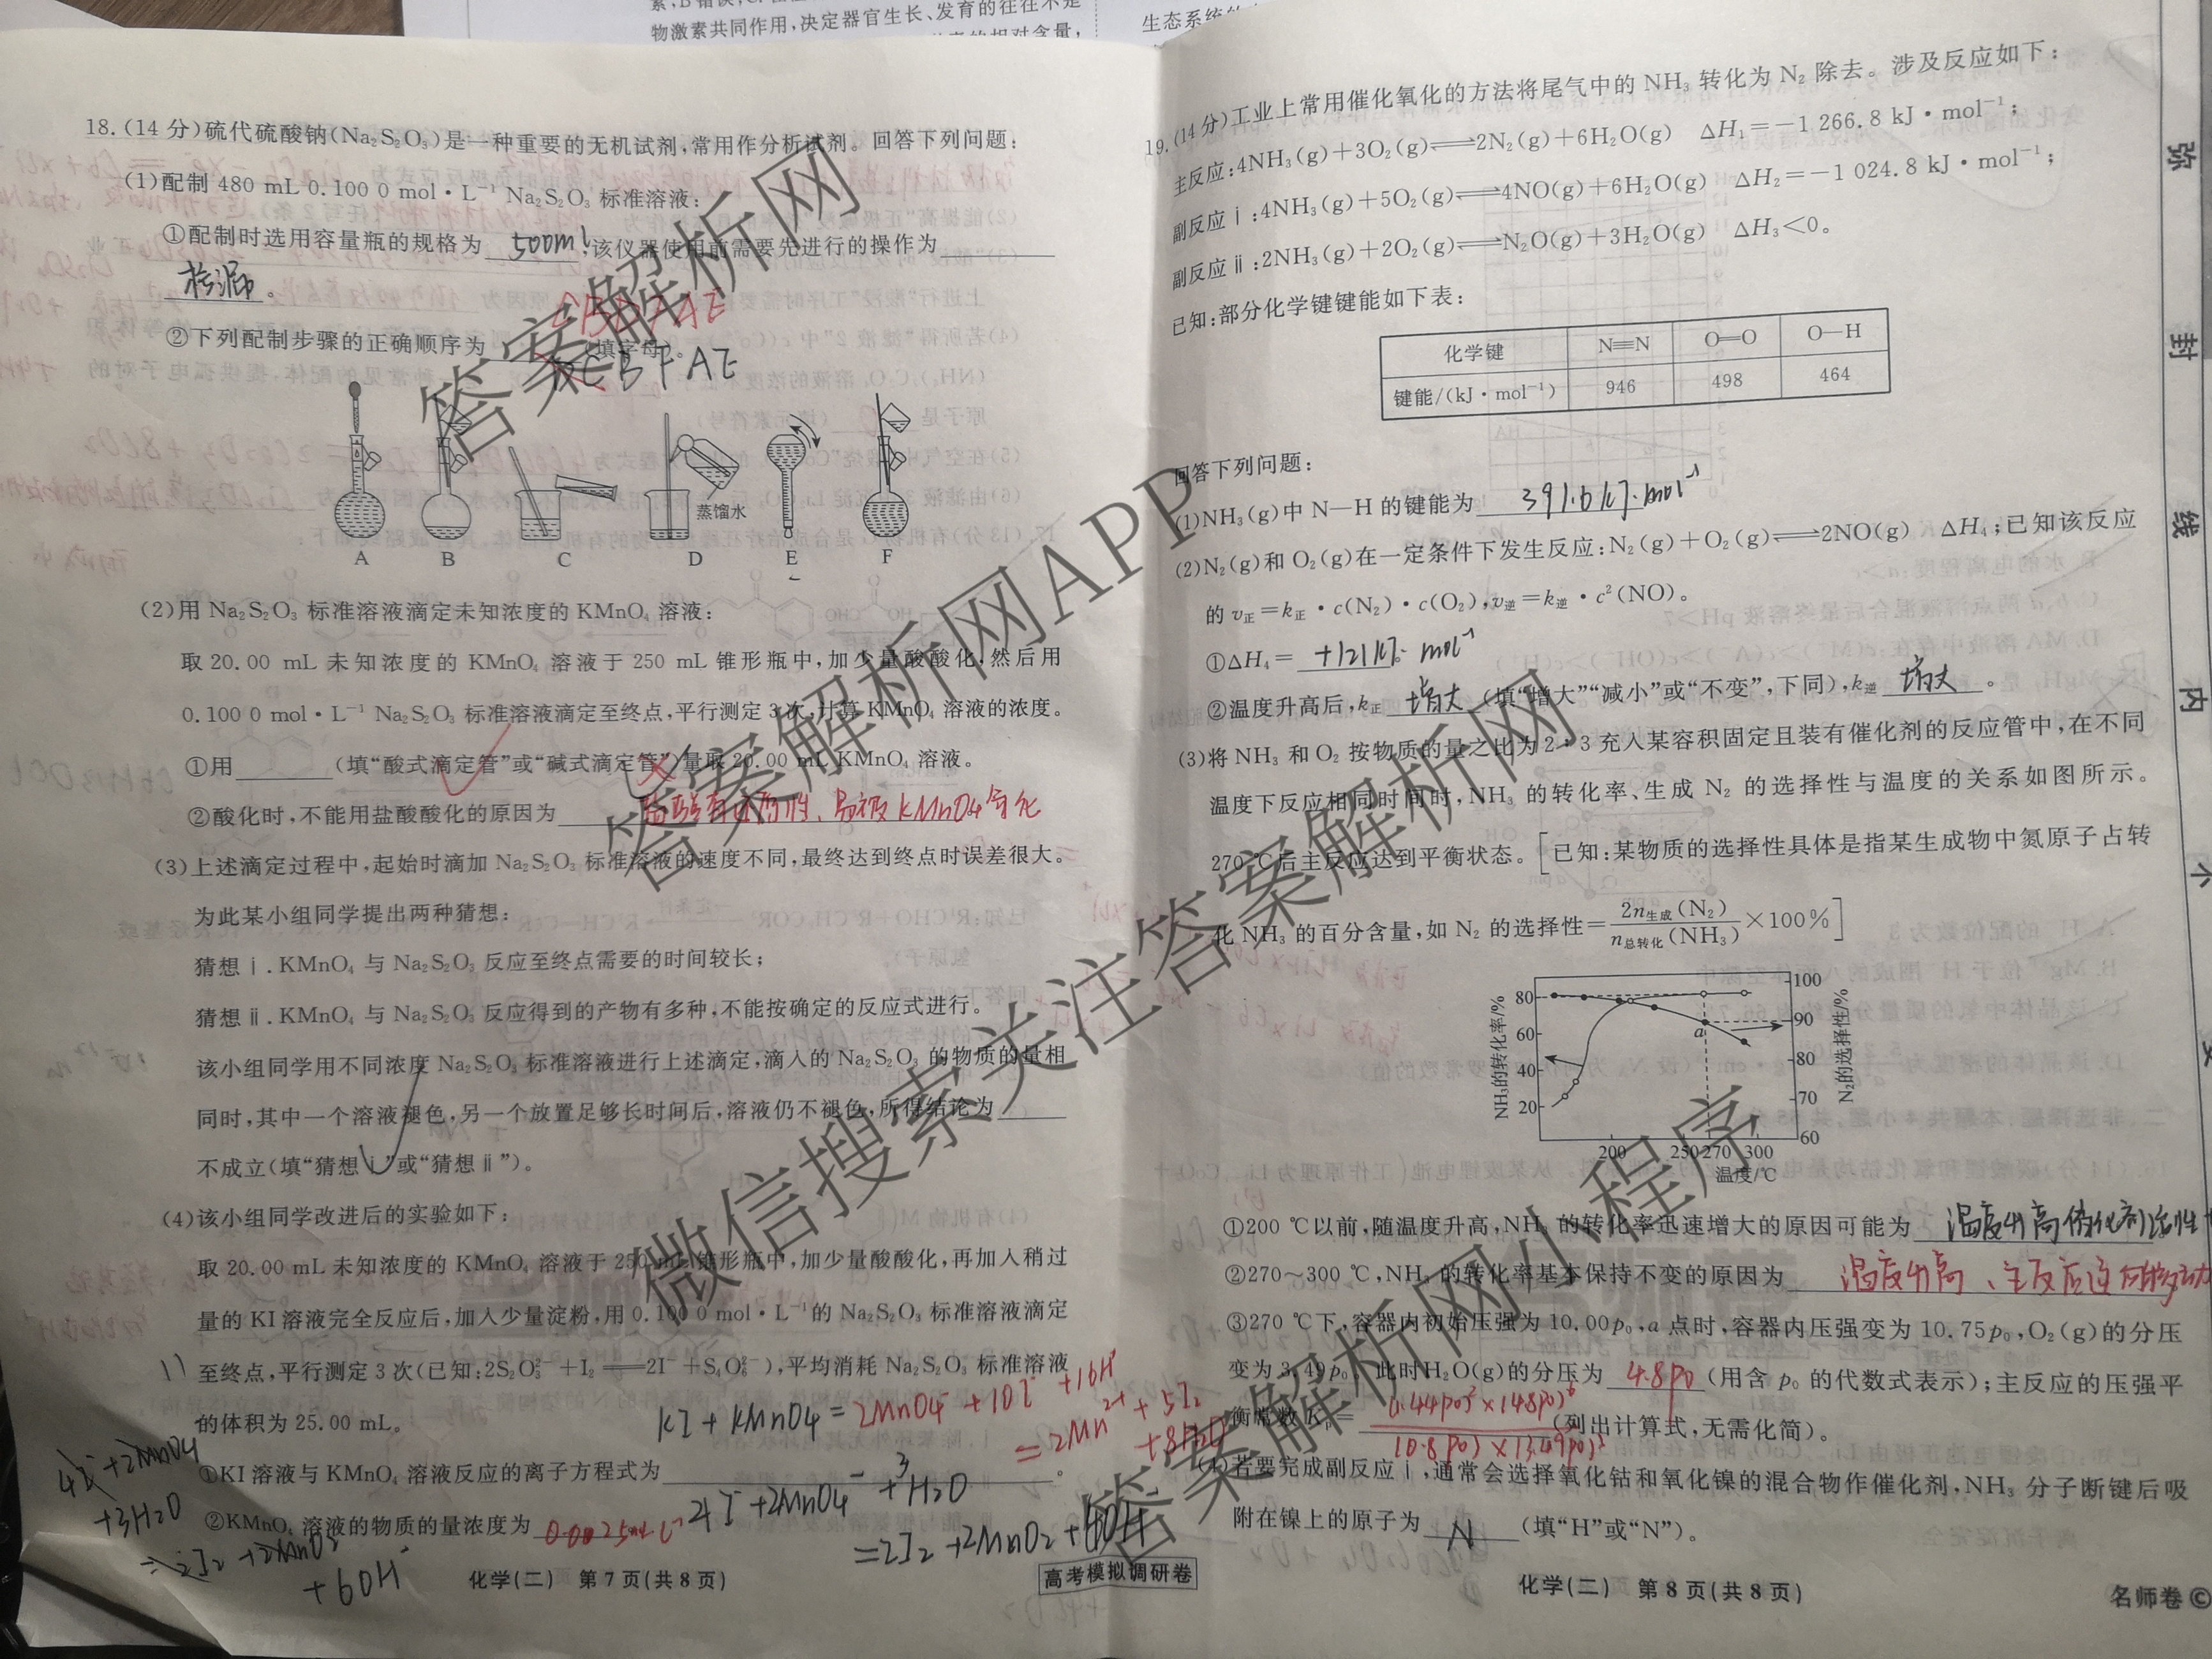 物激素共同作用,决定器官生长、发育的往往不是
18.(14分)硫代硫酸钠(Na₂S₂O₃)是一种重要的无机试剂,常用作分析试剂。回答下列问题:
(1)配制 480 mL 0.100 0 mol·L⁻¹ Na₂S₂O₃ 标准溶液:
①配制时选用容量瓶的规格为 500ml ;该仪器使用前需要先进行的操作为
检漏 。
CBDFAE
②下列配制步骤的正确顺序为 (填字母)。
DCBFAE
蒸馏水
A B C D E F
(2)用 Na₂S₂O₃ 标准溶液滴定未知浓度的 KMnO₄ 溶液:
取 20.00 mL 未知浓度的 KMnO₄ 溶液于 250 mL 锥形瓶中,加少量酸酸化,然后用
0.100 0 mol·L⁻¹ Na₂S₂O₃ 标准溶液滴定至终点,平行测定 3 次,计算 KMnO₄ 溶液的浓度。
①用 (填“酸式滴定管”或“碱式滴定管”)量取 20.00 mL KMnO₄ 溶液。
②酸化时,不能用盐酸酸化的原因为 盐酸有还原性、易被KMnO4氧化
(3)上述滴定过程中,起始时滴加 Na₂S₂O₃ 标准溶液的速度不同,最终达到终点时误差很大。
为此某小组同学提出两种猜想:
猜想ⅰ.KMnO₄ 与 Na₂S₂O₃ 反应至终点需要的时间较长;
猜想ⅱ.KMnO₄ 与 Na₂S₂O₃ 反应得到的产物有多种,不能按确定的反应式进行。
该小组同学用不同浓度 Na₂S₂O₃ 标准溶液进行上述滴定,滴入的 Na₂S₂O₃ 的物质的量相
同时,其中一个溶液褪色,另一个放置足够长时间后,溶液仍不褪色,所得结论为
不成立(填“猜想ⅰ”或“猜想ⅱ”)。
(4)该小组同学改进后的实验如下:
取 20.00 mL 未知浓度的 KMnO₄ 溶液于 250 mL 锥形瓶中,加少量酸酸化,再加入稍过
量的 KI 溶液完全反应后,加入少量淀粉,用 0.100 0 mol·L⁻¹的 Na₂S₂O₃ 标准溶液滴定
至终点,平行测定 3 次(已知:2S₂O₃²⁻+I₂══2I⁻+S₄O₆²⁻),平均消耗 Na₂S₂O₃ 标准溶液
的体积为 25.00 mL。
KI+KMnO4=2MnO4⁻+10I⁻+16H⁺
=2Mn²⁺+5I₂
+8H₂O
①KI 溶液与 KMnO₄ 溶液反应的离子方程式为 。
4I⁻+2MnO4⁻+3H₂O
②KMnO₄ 溶液的物质的量浓度为
=2I₂+2MnO₂+
4I⁻+2MnO4
+3H₂O
=2I₂+2MnO₂
+6OH⁻
化学(二) 第 7 页(共 8 页)
高考模拟调研卷
19.(14分)工业上常用催化氧化的方法将尾气中的 NH₃ 转化为 N₂ 除去。涉及反应如下:
主反应:4NH₃(g)+3O₂(g)⇌2N₂(g)+6H₂O(g) ΔH₁=−1 266.8 kJ·mol⁻¹;
副反应ⅰ:4NH₃(g)+5O₂(g)⇌4NO(g)+6H₂O(g) ΔH₂=−1 024.8 kJ·mol⁻¹;
副反应ⅱ:2NH₃(g)+2O₂(g)⇌N₂O(g)+3H₂O(g) ΔH₃<0。
已知:部分化学键键能如下表:
化学键 N≡N O═O O—H
键能/(kJ·mol⁻¹) 946 498 464
回答下列问题:
(1)NH₃(g)中 N—H 的键能为 391.6kJ·mol⁻¹
(2)N₂(g)和 O₂(g)在一定条件下发生反应:N₂(g)+O₂(g)⇌2NO(g) ΔH₄;已知该反应
的 v正=k正·c(N₂)·c(O₂),v逆=k逆·c²(NO)。
①ΔH₄= +121kJ·mol⁻¹
②温度升高后,k正 增大 (填“增大”“减小”或“不变”,下同),k逆 增大 。
(3)将 NH₃ 和 O₂ 按物质的量之比为 2∶3 充入某容积固定且装有催化剂的反应管中,在不同
温度下反应相同时间时,NH₃ 的转化率、生成 N₂ 的选择性与温度的关系如图所示。
270 ℃后主反应达到平衡状态。[已知:某物质的选择性具体是指某生成物中氮原子占转
化 NH₃ 的百分含量,如 N₂ 的选择性=2n生成(N₂)/n总转化(NH₃)×100%]
NH₃的转化率/%
80 60 40 20
a
100 90 80 70 60
N₂的选择性/%
200 250 270 300
温度/℃
①200 ℃以前,随温度升高,NH₃ 的转化率迅速增大的原因可能为 温度升高催化剂活性
②270～300 ℃,NH₃ 的转化率基本保持不变的原因为 温度升高、主反应逆向移动
③270 ℃下,容器内初始压强为 10.00p₀,a 点时,容器内压强变为 10.75p₀,O₂(g)的分压
变为 3.49p₀,此时H₂O(g)的分压为 4.8p0 (用含 p₀ 的代数式表示);主反应的压强平
衡常数 Kp= (1.44p0)²×(4.8p0)⁶/(0.8p0)×(3.49p0)³ (列出计算式,无需化简)。
(4)若要完成副反应ⅰ,通常会选择氧化钴和氧化镍的混合物作催化剂,NH₃ 分子断键后吸
附在镍上的原子为 N (填“H”或“N”)。
化学(二) 第 8 页(共 8 页)
名师卷©
弥
封
线
内
不
答案解析网
答案解析网APP
微信搜索关注答案解析网
答案解析网小程序